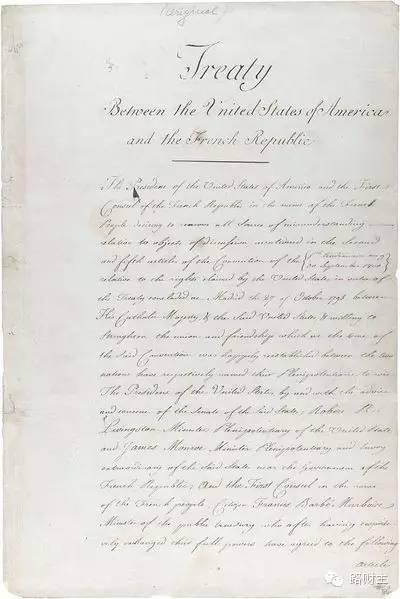 (Original)
Treaty
Between the United States of America
and the French Republic
The President of the United States of America and the First
Consul of the French Republic in the name of the French
People desiring to remove all Source of misunderstanding
relative to objects of discussion mentioned in the Second
and fifth articles of the Convention of the
30 September 1800
relative to the rights claimed by the United States, in virtue of
the Treaty concluded at Madrid the 27 of October 1795 between
His Catholic Majesty, & the Said United States, & willing to
Strengthen the union and friendship which at the time of
the Said Convention was happily reestablished between the two
nations have respectively named their Plenipotentiaries to wit
The President of the United States, by and with the advice
and consent of the Senate of the Said States, Robert R.
Livingston Minister Plenipotentiary of the United States
and James Monroe Minister Plenipotentiary and Envoy
extraordinary of the Said States near the Government of the
French Republic; And the First Consul in the name
of the French people, Citizen Francis Barbé Marbois
Minister of the public treasury who after having respecti-
vely exchanged their full powers have agreed to the following
articles
路财主